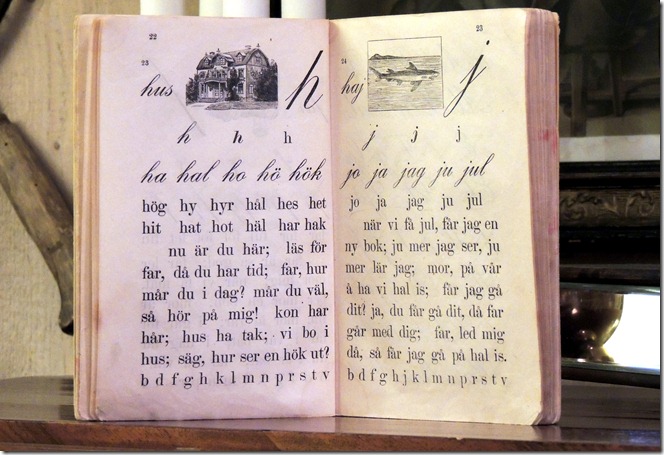 22
23
hus h
h h h
ha hal ho hö hök
hög hy hyr hål hes het
hit hat hot häl har hak
nu är du här; läs för
far, då du har tid; far, hur
mår du i dag? mår du väl,
så hör på mig! kon har
hår; hus ha tak; vi bo i
hus; säg, hur ser en hök ut?
b d f g h k l m n p r s t v
23
24
haj j
j j j
jo ja jag ju jul
jo ja jag ju jul
när vi få jul, får jag en
ny bok; ju mer jag ser, ju
mer lär jag; mor, på vår
å ha vi hal is; får jag gå
dit? ja, du får gå dit, då far
går med dig; far, led mig
då, så får jag gå på hal is.
b d f g h j k l m n p r s t v